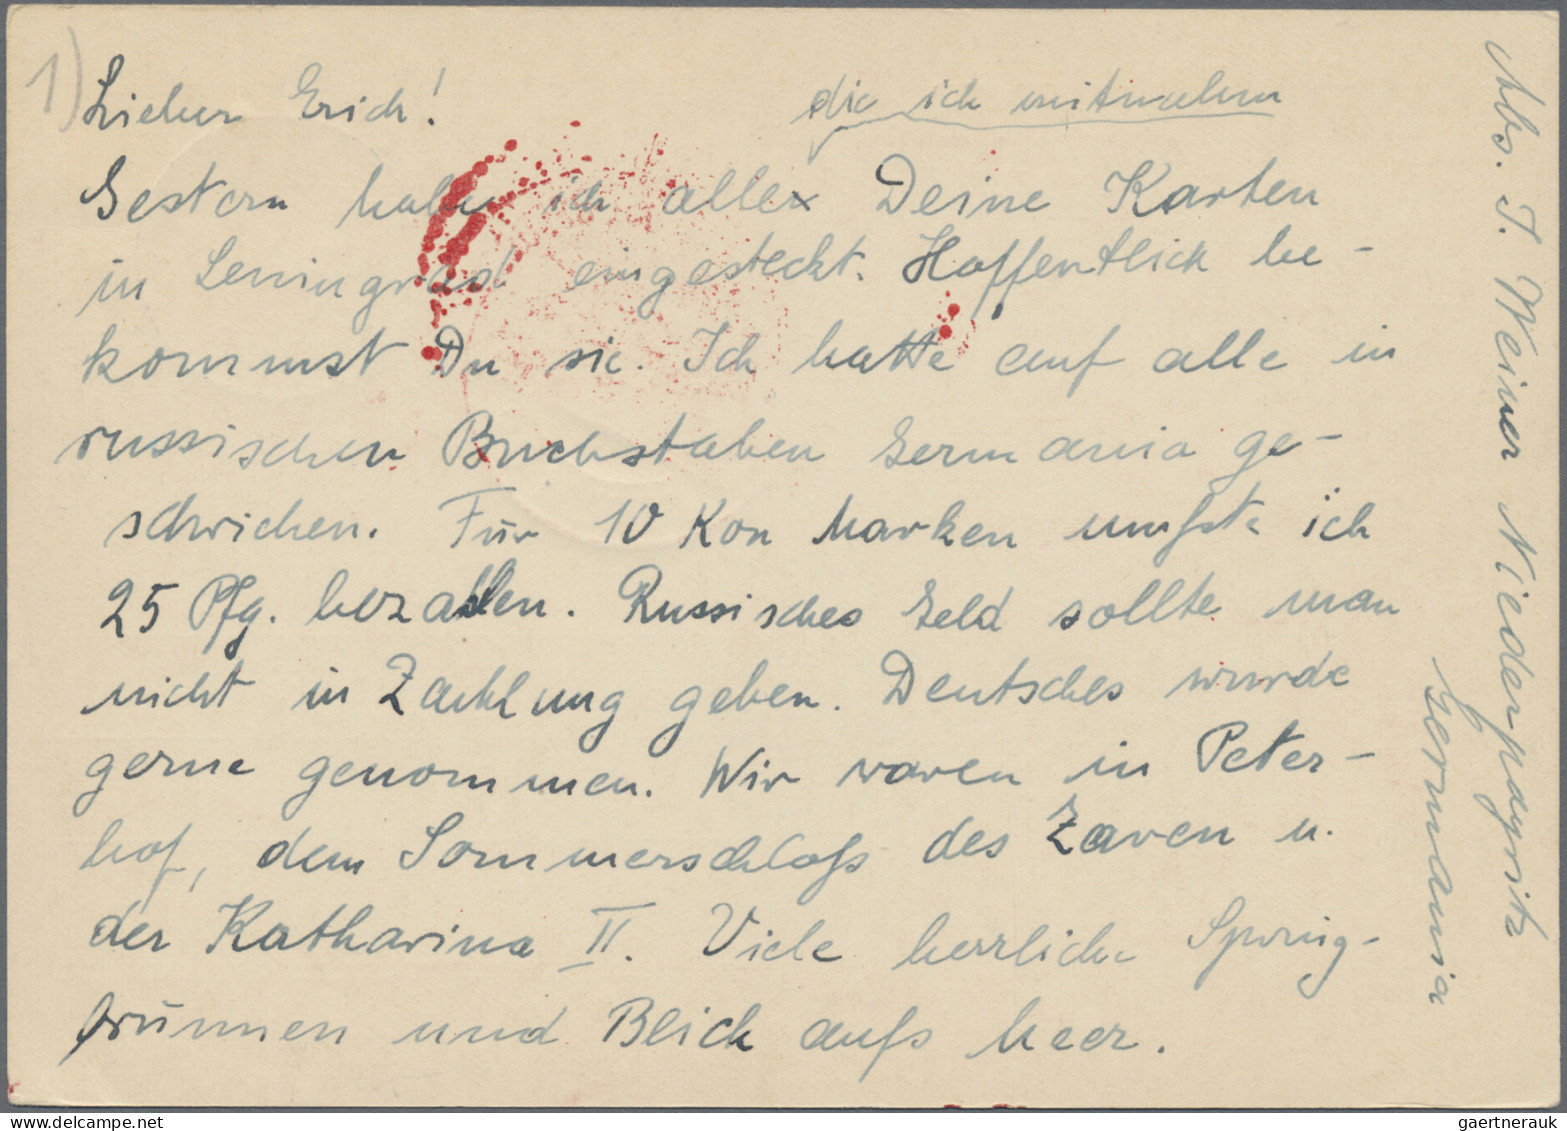 1)
Lieber Erich!
die ich mitnahm
Gestern habe ich alle Deine Karten
in Leningrad eingesteckt. Hoffentlich be-
kommst Du sie. Ich hatte auf alle in
russischen Buchstaben Germania ge-
schrieben. Für 10 Kop Marken mußte ich
25 Pfg. bezahlen. Russisches Geld sollte man
nicht in Zahlung geben. Deutsches wurde
gerne genommen. Wir waren in Peter-
hof, dem Sommerschloß des Zaren u.
der Katharina II. Viele herrliche Spring-
brunnen und Blick aufs Meer.
Abs. J. Weiner Niederpoyritz
Germania
gaertnerauk @ delcampe.net